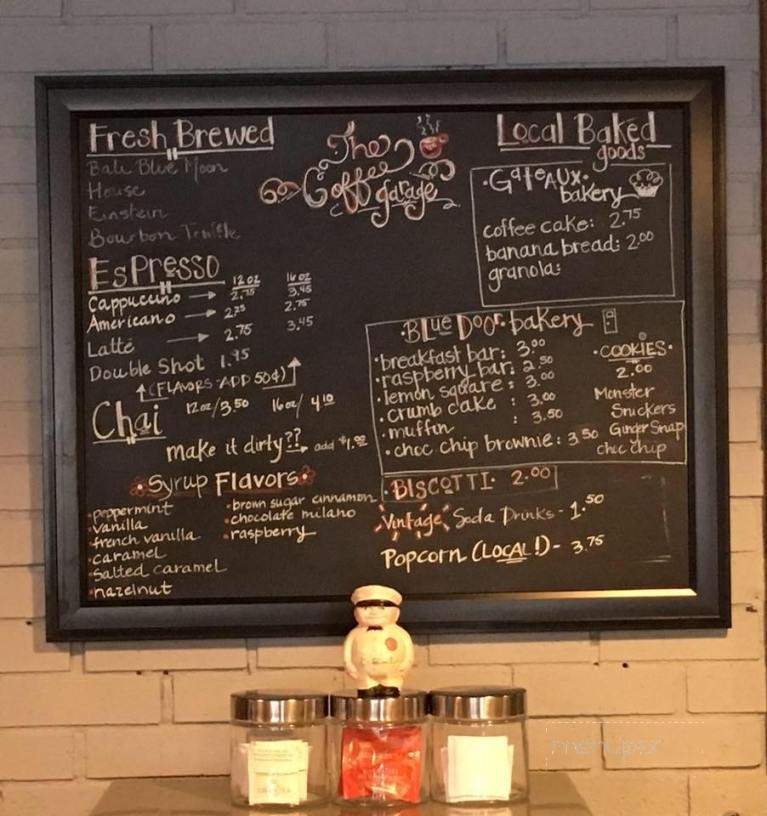 Fresh Brewed
Bali Blue Moon
House
Einstein
Bourbon Truffle
Espresso
12 oz 16 oz
Cappuccino → 2.75 3.45
Americano → 2.25 2.75
Latte → 2.75 3.45
Double Shot 1.95
(FLAVORS-ADD 50¢)
Chai 12oz/3.50 16oz/4.10
make it dirty?? → add $1.00
Syrup Flavors
peppermint
vanilla
french vanilla
caramel
salted caramel
hazelnut
brown sugar cinnamon
chocolate milano
raspberry
The
Coffee
garage
Local Baked
goods
Gateaux
bakery
coffee cake: 2.75
banana bread: 2.00
granola:
Blue Door bakery
breakfast bar: 3.00
raspberry bar: 2.50
lemon square: 3.00
crumb cake : 3.00
muffin : 3.50
choc chip brownie: 3.50
COOKIES
2.00
Monster
Snickers
Ginger Snap
choc chip
BISCOTTI 2.00
Vintage Soda Drinks - 1.50
Popcorn (LOCAL!) - 3.75
menupix